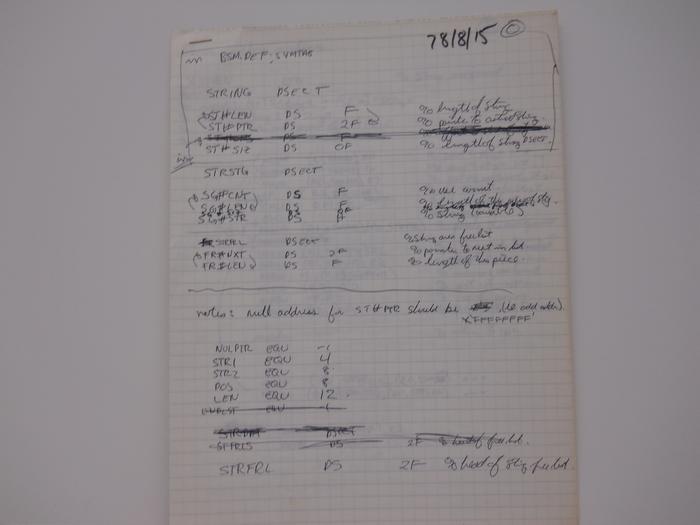 78/8/15
BSM.DEF; SYMTAB
STRING DSECT
ST#LEN DS F % length of string
ST#PTR DS 2F % pointer to actual string
ST#SIZ DS 0F % length of string DSECT.
STRSTG DSECT
SG#CNT DS F % use count
SG#LEN DS F % length of string.
SG#STR DS % string (variable)
DSECT % string area freelist
FR#NXT DS 2F % pointer to next in list
FR#LEN DS F % length of this piece.
notes: null address for ST#PTR should be (ie odd addr).
X'FFFFFFFF'
NULPTR EQU -1
STR1 EQU 4
STR2 EQU 8
POS EQU 8
LEN EQU 12
EQU -1
DSECT
STFRLS DS 2F % head of free list.
STRFRL DS 2F % head of string free list.